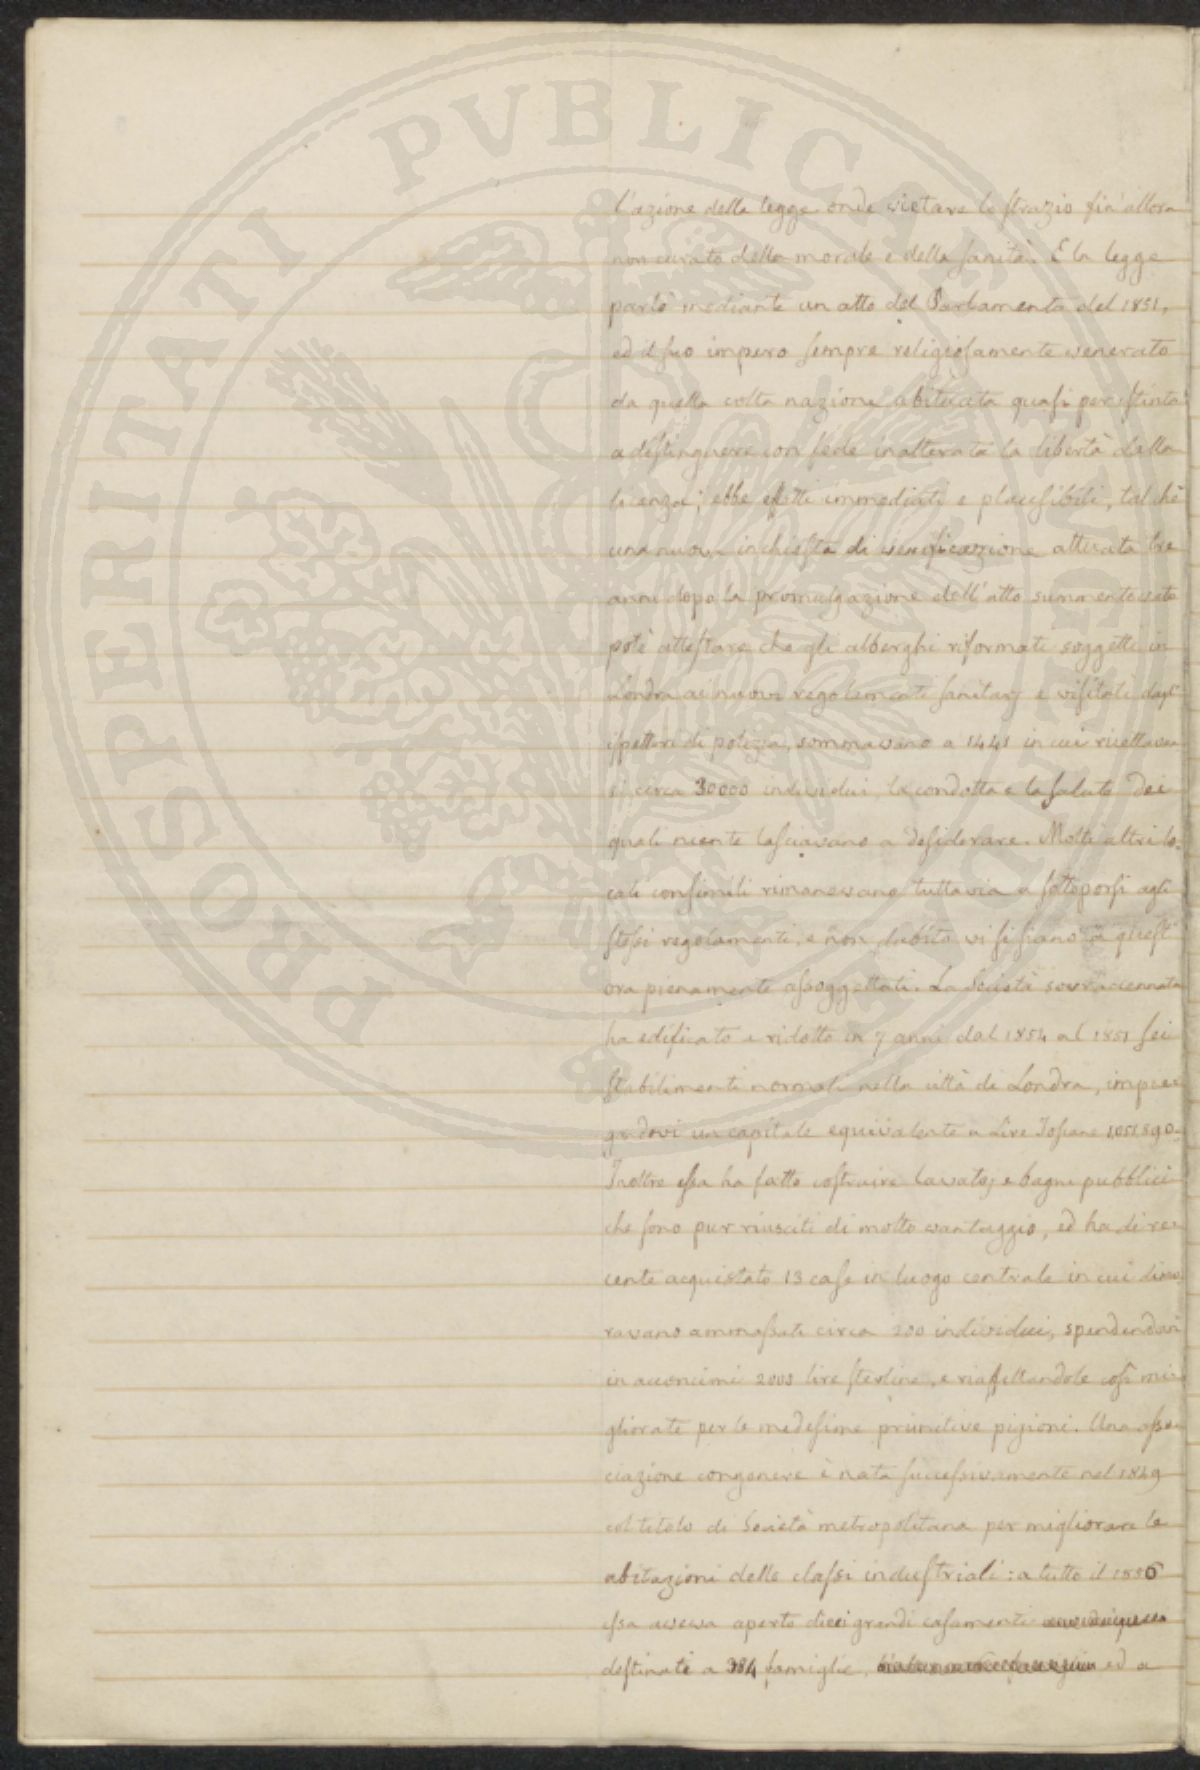 PROSPERITATI PVBLICAE AVGENDAE
l'azione della legge onde vietare lo strazio fin'allora
non curato della morale e della sanità. E la legge
parlò mediante un atto del Parlamento del 1851,
ed il suo impero sempre religiosamente venerato
da quella colta nazione abituata quasi per istinto
a distinguere con fede inalterata la libertà dalla
licenza; ebbe effetti immediati e plausibili, talchè
una nuova inchiesta di verificazione attivata tre
anni dopo la promulgazione dell'atto summentovato
potè attestare che gli alberghi riformati soggetti in
Londra ai nuovi regolamenti sanitarj e visitati dagl'
ispettori di polizia, sommavano a 1441 in cui ricettavan
si circa 30000 individui, la condotta e la salute dei
quali niente lasciavano a desiderare. Molti altri lo-
cali consimili rimanevano tuttavia a sottoporsi agli
stessi regolamenti, e non dubito vi si siano a quest'
ora pienamente assoggettati. La Società sovraccennata
ha edificato e ridotto in 7 anni dal 1854 al 1851 sei
stabilimenti normali nella città di Londra, impie-
gandovi un capitale equivalente a Lire Toscane 1051890.
Inoltre essa ha fatto costruire lavatoj e bagni pubblici
che sono pur riusciti di molto vantaggio, ed ha di re-
cente acquistato 13 case in luogo centrale in cui dimo-
ravano ammassati circa 200 individui, spendendovi
in acconcimi 2000 lire sterline, e riaffittandole così mi-
gliorate per le medesime primitive pigioni. Una asso-
ciazione congenere è nata successivamente nel 1849
col titolo di Società metropolitana per migliorare le
abitazioni delle classi industriali: a tutto il 1856
essa aveva aperto dieci grandi casamenti
destinati a 384 famiglie, ed a